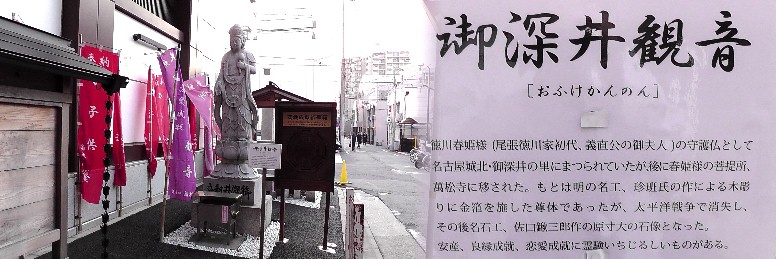 奉納
御深井観音
[おふけかんのん]
龍川春姫様(尾張徳川家初代、義直公の御夫人)の守護仏として
名古屋城北・御深井の里にまつられていたが、後に春姫様の菩提所、
萬松寺に移された。もとは明の名工、珍班氏の作による木彫
りに金箔を施した尊体であったが、太平洋戦争で消失し、
その後名石工、佐口鍬三郎作の原寸大の石像となった。
安産、良縁成就、恋愛成就に霊験いちじるしいものがある。